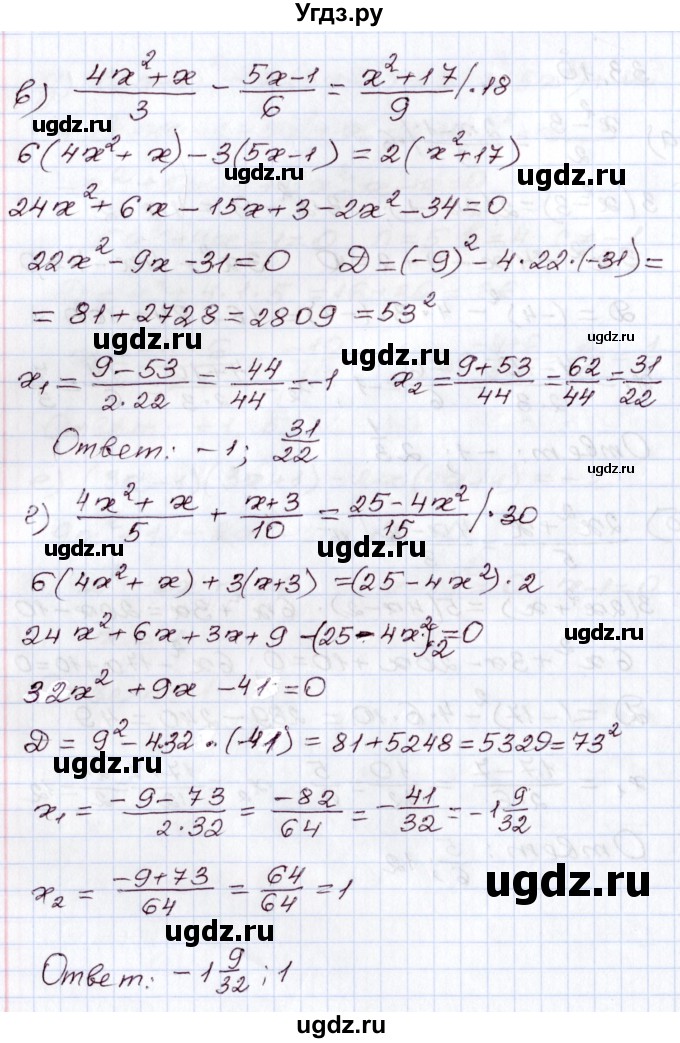 Угдз.ру
в) (4x²+x)/3 - (5x-1)/6 = (x²+17)/9 /·18
ugdz.ru
6(4x²+x)-3(5x-1)=2(x²+17)
ugdz.ru
ugdz.ru
24x²+6x-15x+3-2x²-34=0
22x²-9x-31=0 Д=(-9)²-4·22·(-31)=
= 81+2728=2809=53²
ugdz.ru
ugdz.ru
x₁ = (9-53)/(2·22) = -44/44 = -1 x₂ = (9+53)/44 = 62/44 = 31/22
Ответ: -1; 31/22
ugdz.ru
ugdz.ru
г) (4x²+x)/5 + (x+3)/10 = (25-4x²)/15 /·30
ugdz.ru
6(4x²+x)+3(x+3)=(25-4x²)·2
24x²+6x+3x+9-(25-4x²)·2=0
ugdz.ru
32x²+9x-41=0
Д = 9²-4·32·(-41) = 81+5248=5329=73²
ugdz.ru
ugdz.ru
x₁ = (-9-73)/(2·32) = -82/64 = -41/32 = -1 9/32
x₂ = (-9+73)/64 = 64/64 = 1
ugdz.ru
ugdz.ru
Ответ: -1 9/32; 1
ugdz.ru
ugdz.ru